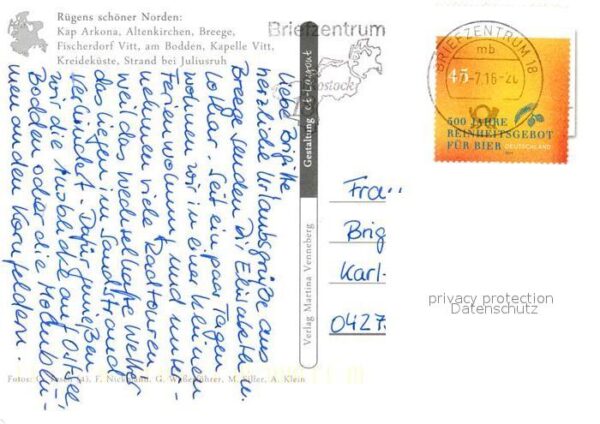 Rügens schöner Norden:
Kap Arkona, Altenkirchen, Breege,
Fischerdorf Vitt, am Bodden, Kapelle Vitt,
Kreideküste, Strand bei Juliusruh
Liebe Brigitte
herzliche Urlaubsgrüße aus
Breege senden Dir Elisabeth u.
Lothar. Seit ein paar Tagen
wohnen wir in einer kleinen
Ferienwohnung und unter-
nehmen viele Radtouren
weil das wechselhafte Wetter
das Liegen im Sandstrand
verhindert. Dafür genießen
wir die Ausblicke auf Ostsee,
Bodden oder die Mohnblu-
men an den Kornfeldern.
Fotos: F. Nickmann, G. M. Siller, A. Klein
Gestaltung
Verlag Martina Venneberg
Briefzentrum
Rostock
BRIEFZENTRUM 18
mb
45
500 JAHRE
REINHEITSGEBOT
FÜR BIER DEUTSCHLAND
Brig
Karl-
0427
privacy protection
Datenschutz